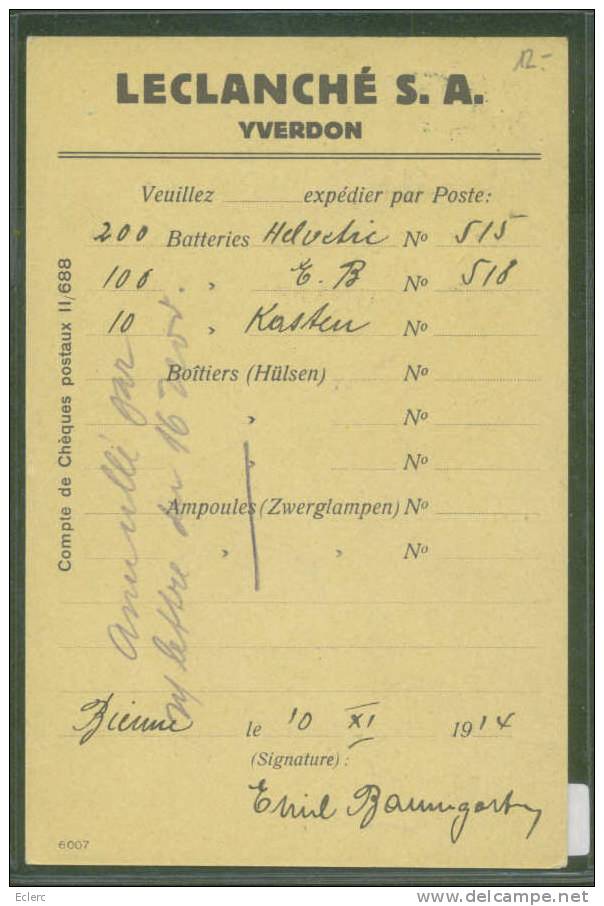 12.-
LECLANCHÉ S. A.
YVERDON
Veuillez expédier par Poste:
200 Batteries Helvetic No 515
100 " E. B No 518
10 " Kasten No
Boîtiers (Hülsen) No
" No
" No
Ampoules (Zwerglampen) No
" " No
Compte de Chèques postaux II/688
Annullé par
lettre du 16
Bienne le 10 XI 1914
(Signature):
Emil Baumgartner
6007
Eclerc
delcampe.net